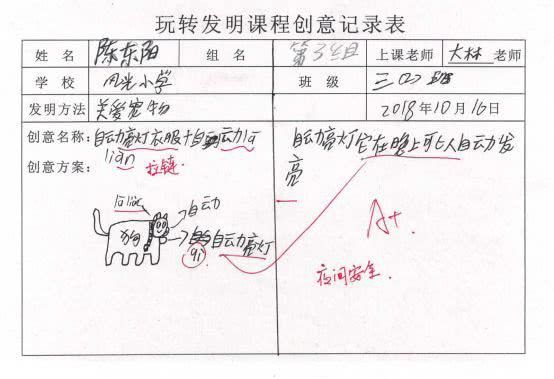 玩转发明课程创意记录表
姓 名 陈东阳 组 名 第34组 上课老师 大林 老师
学 校 风光小学 班 级 三(4)班
发明方法 关爱宠物 2018年10月16日
创意名称: 自动亮灯衣服+自动la
lian 拉链.
创意方案:
自动亮灯它在晚上可以自动发
亮
lalian
自动
狗狗
自动亮灯
A+
夜间安全.